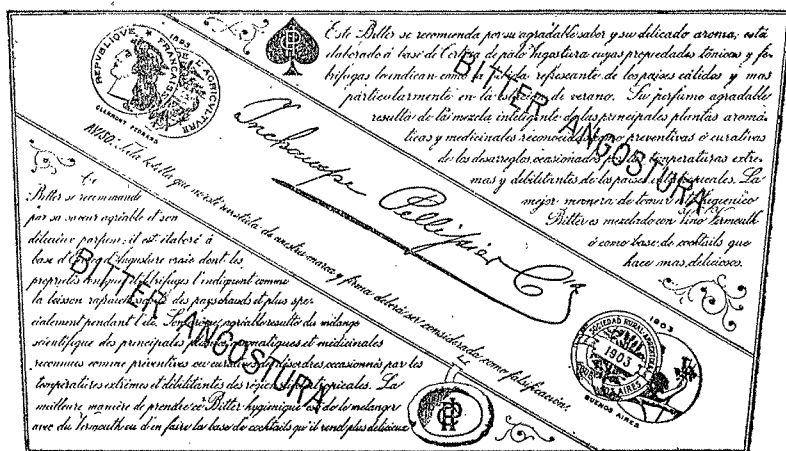 Este Bitter se recomienda por su agradable sabor y su delicado aroma; está
elaborado á base de Corteza de palo Angostura cuyas propiedades tónicas y fe-
brífugas lo indican como la bebida refrescante de los paises cálidos y mas
particularmente en la estación de verano. Su perfume agradable
resulta de la mezcla inteligente de las principales plantas aromá-
ticas y medicinales reconocidas como preventivas ó curativas
de los desarreglos ocasionados por las temperaturas extre-
mas y debilitantes de los paises tropicales. La
mejor manera de tomar este higienico
Bitter es mezclado con Vino Vermouth
ó como base de cocktails que
hace mas deliciosos.
BITTER ANGOSTURA
1903
REPUBLIQUE FRANÇAISE
L'AGRICULTURE
CLERMONT FERRAND
Pellissier Cia
AVISO: Toda botella que no esté revestida de nuestra marca y firma deberá ser considerada como falsificación.
Ce
Bitter se recommande
par sa saveur agréable et son
délicieux parfum; il est élaboré à
base d'Ecorce d'Angosture vraie dont les
propriétés toniques et fébrifuges l'indiquent comme
la boisson rafraichissante des pays chauds et plus spé-
cialement pendant l'été. Son arôme agréable résulte du mélange
scientifique des principales plantes aromatiques et médicinales
reconnues comme préventives ou curatives des désordres occasionnés par les
températures extrêmes et débilitantes des régions tropicales. La
meilleure manière de prendre ce Bitter hygienique est de le mélanger
avec du Vermouth ou d'en faire la base de cocktails qu'il rend plus délicieux
BITTER ANGOSTURA
SOCIEDAD RURAL ARGENTINA
1903
BUENOS AIRES
1903
BUENOS AIRES